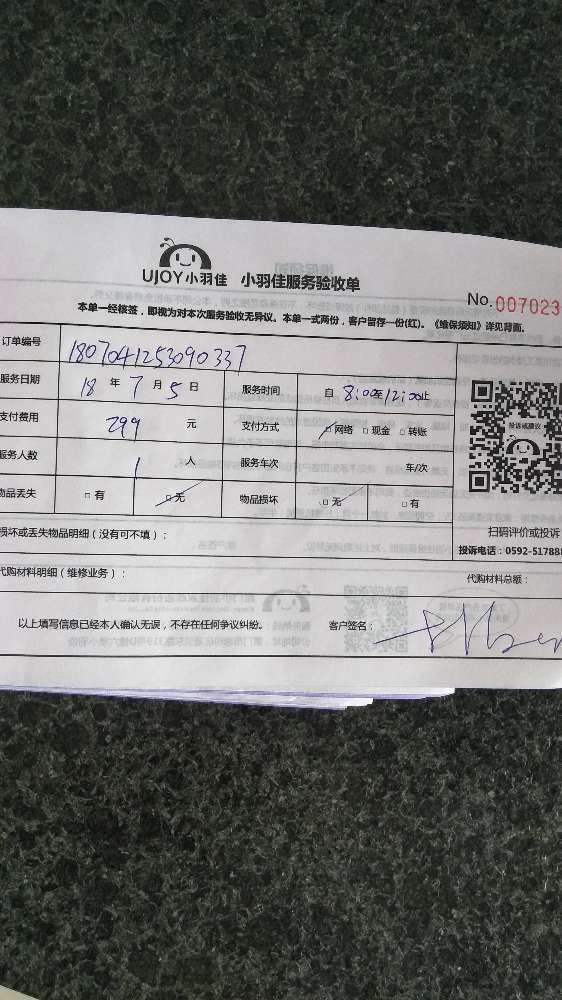 UJOY小羽佳 小羽佳服务验收单
No. 007023
本单一经核签，即视为对本次服务验收无异议。本单一式两份，客户留存一份(红)。《维保须知》详见背面。
订单编号 1807041253090337
服务日期 18 年 7 月 5 日 服务时间 自 8:00至12:00止
支付费用 299 元 支付方式 □网络 □现金 □转账
投诉或建议
服务人数 1 人 服务车次 车/次
物品丢失 □有 □无 物品损坏 □无 □有
损坏或丢失物品明细（没有可不填）：
扫码评价或投诉
投诉电话：0592-517888
代购材料明细（维修业务）：
代购材料总额：
以上填写信息已经本人确认无误，不存在任何争议纠纷。 客户签名：